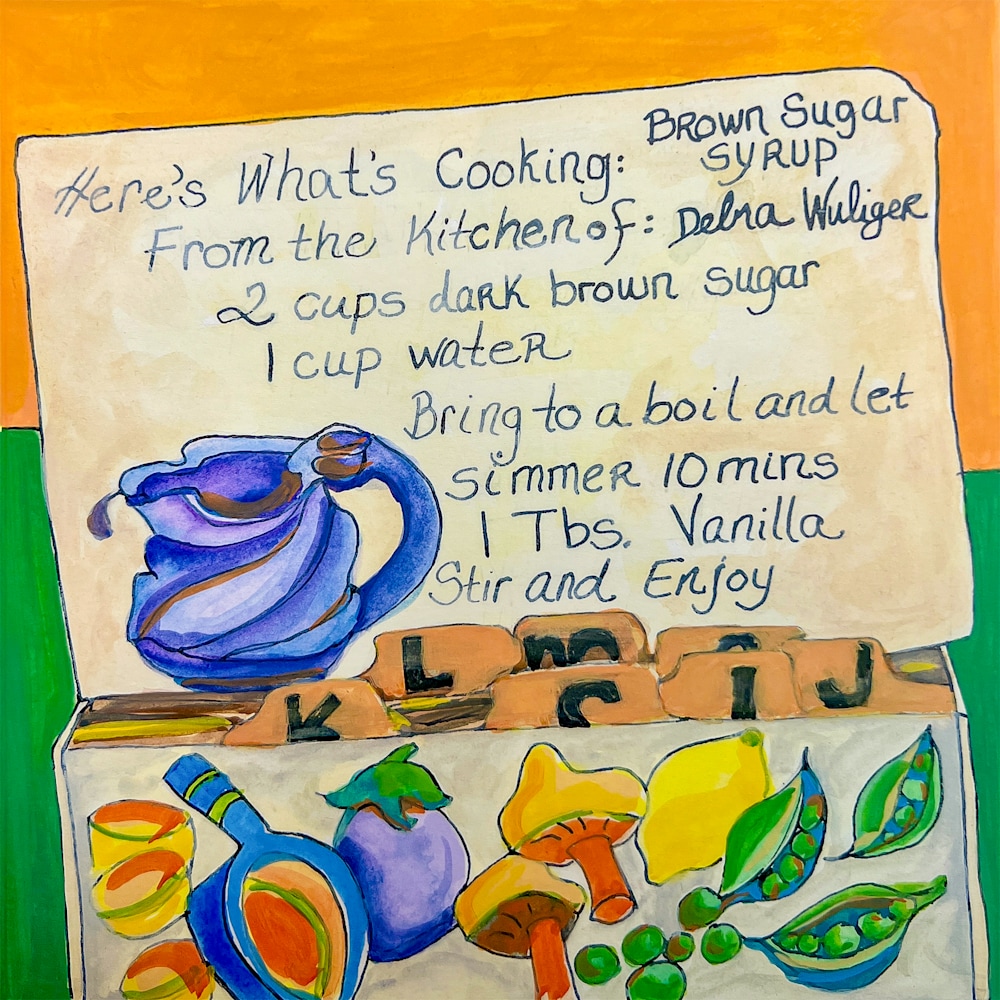 Here's What's Cooking: Brown Sugar
SYRUP
From the Kitchen of: Debra Wuliger
2 cups dark brown sugar
1 cup water
Bring to a boil and let
simmer 10 mins
1 Tbs. Vanilla
Stir and Enjoy
L m
J
K C I